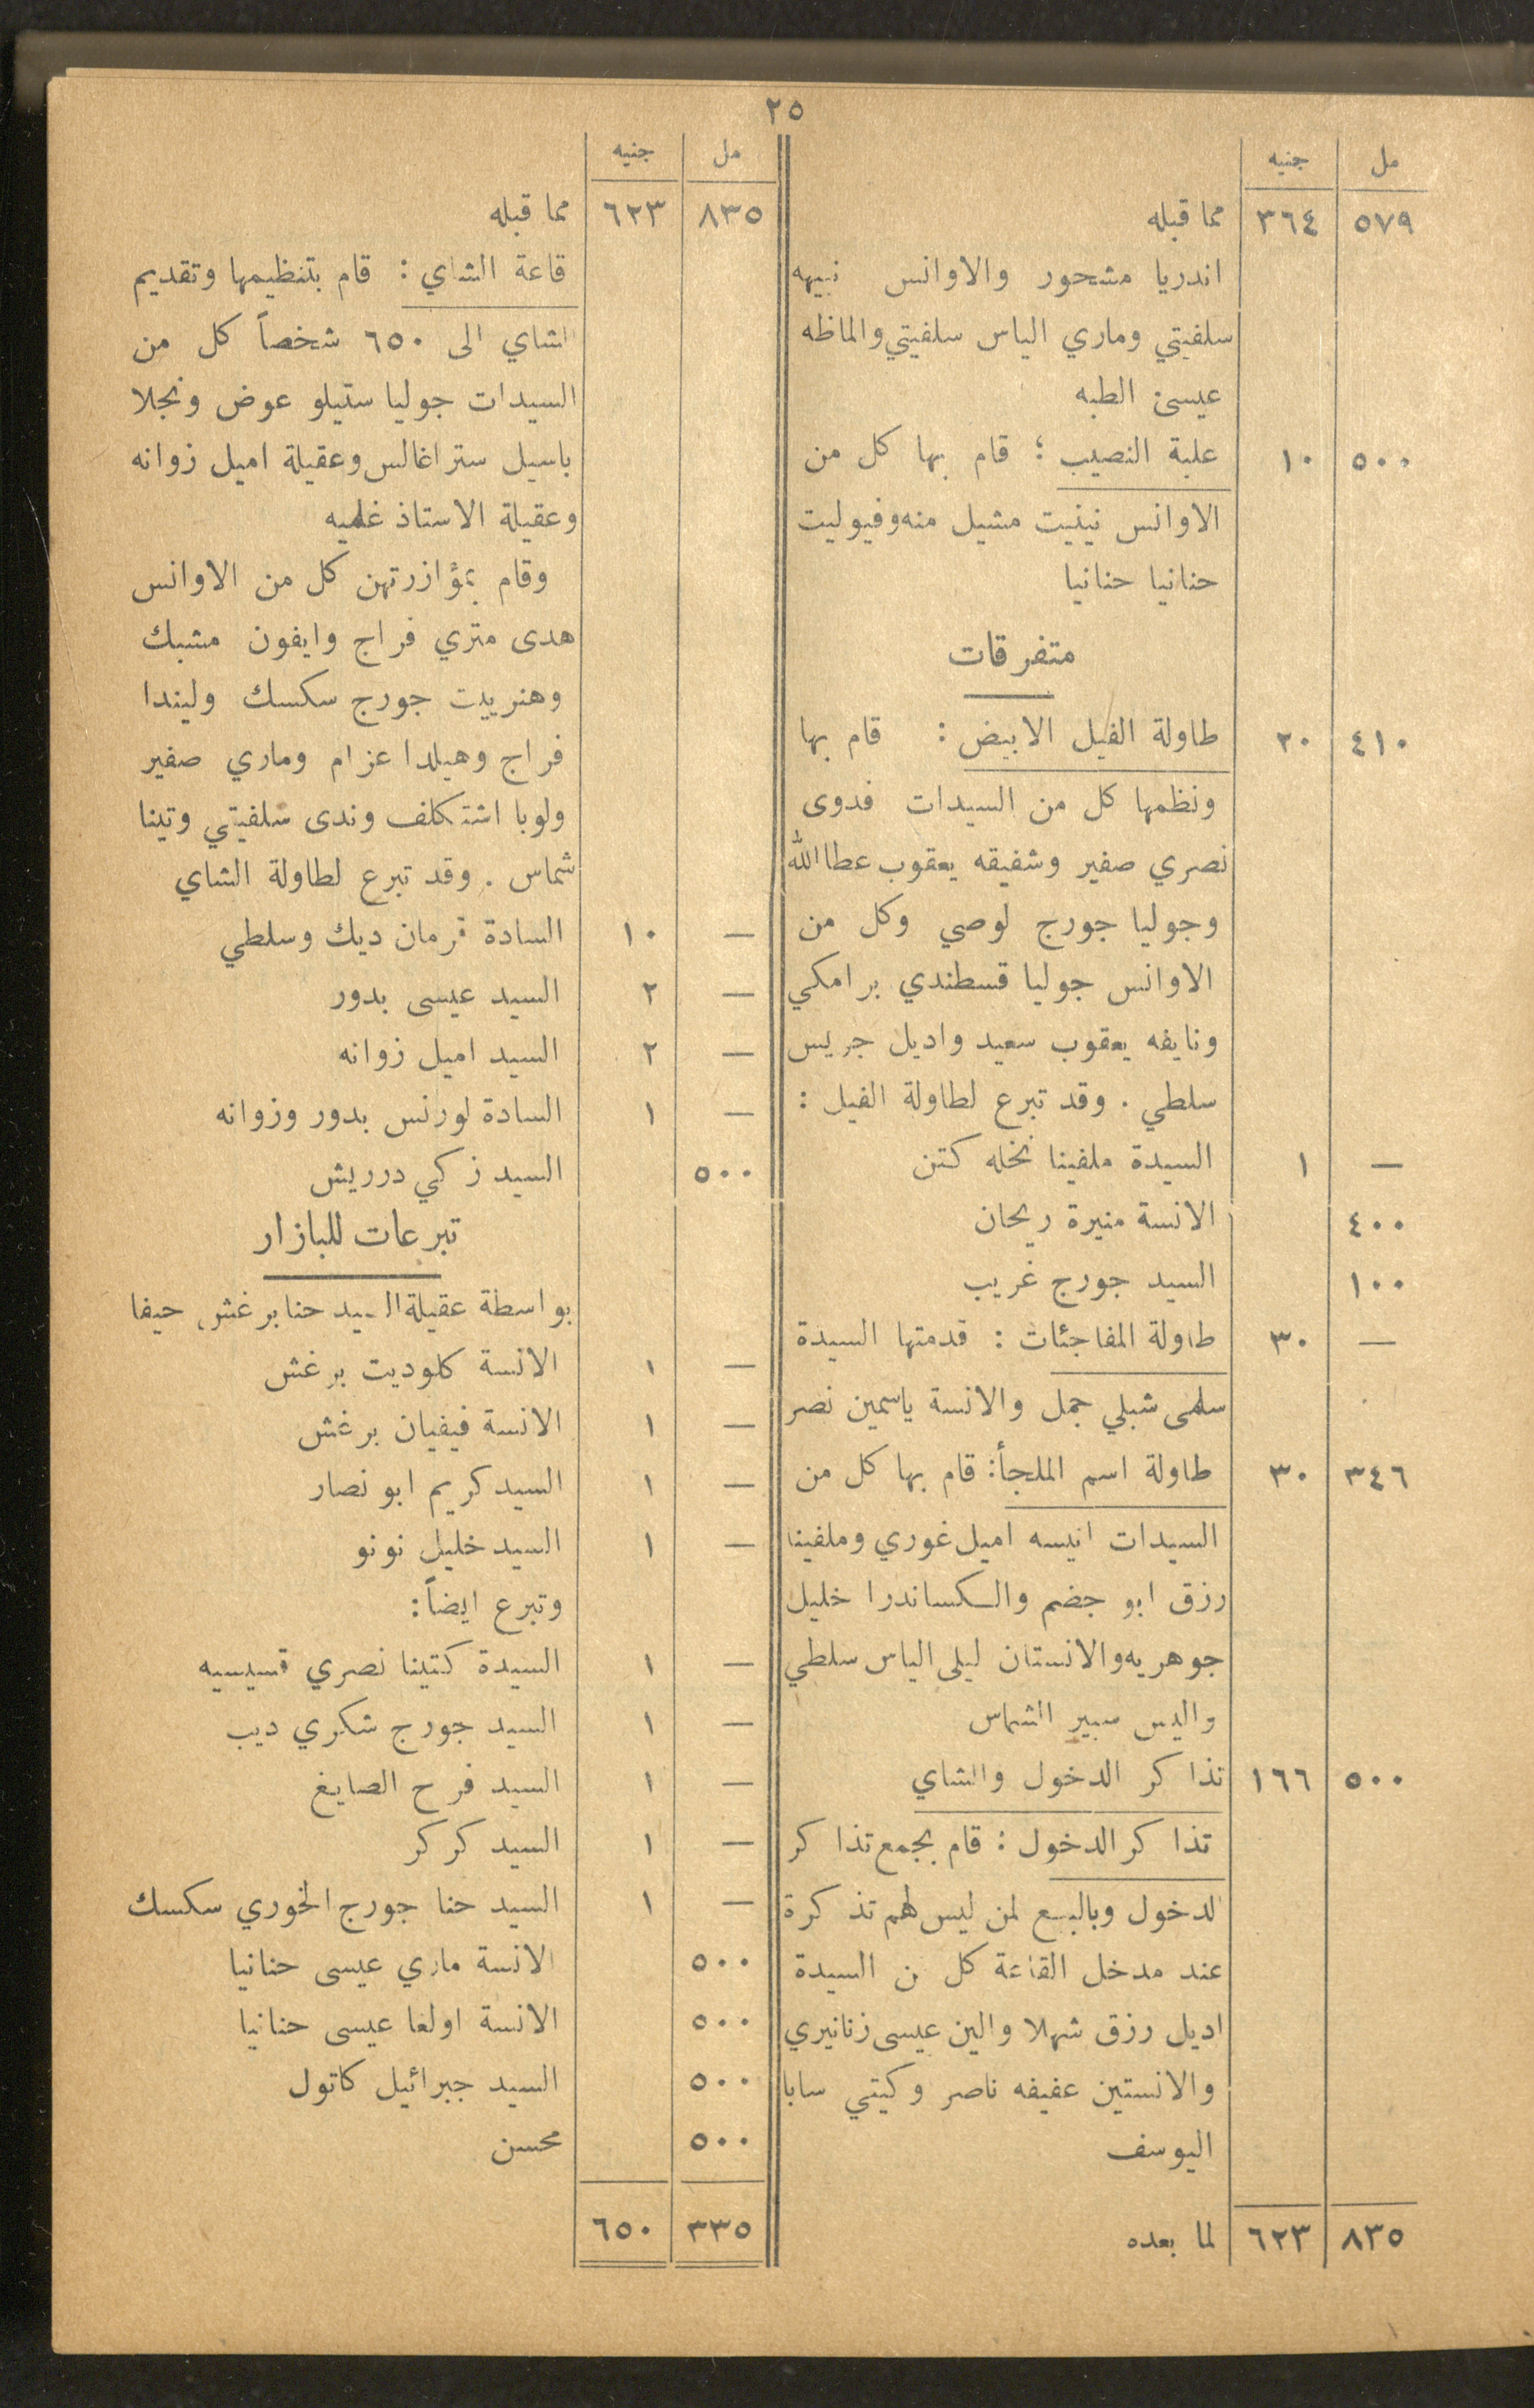 ٢٥
مل جنيه
٥٧٩ ٣٦٤ مما قبله
اندريا مشحور والاوانس نبيهه
سلفيتي وماري الياس سلفيتي والماظه
عيسى الطبه
٥٠٠ ١٠ علبة النصيب : قام بها كل من
الاوانس نينيت مشيل منه وفيوليت
حنانيا حنانيا
متفرقات
٤١٠ ٢٠ طاولة الفيل الابيض : قام بها
ونظمها كل من السيدات فدوى
نصري صفير وشفيقه يعقوب عطاالله
وجوليا جورج لوصي وكل من
الاوانس جوليا قسطندي برامكي
ونايفه يعقوب سعيد واديل جريس
سلطي . وقد تبرع لطاولة الفيل :
— ١ السيدة ملفينا نخله كتن
٤٠٠ الانسة منيرة ريحان
١٠٠ السيد جورج غريب
— ٣٠ طاولة المفاجئات : قدمتها السيدة
سلمى شبلي جمل والانسة ياسمين نصر
٣٤٦ ٣٠ طاولة اسم الملجأ: قام بها كل من
السيدات انيسه اميل غوري وملفينا
رزق ابو جضم والكساندرا خليل
جوهريه والانستان ليلى الياس سلطي
واليس سبير الشماس
٥٠٠ ١٦٦ تذاكر الدخول والشاي
تذاكر الدخول : قام بجمع تذاكر
الدخول وبالبيع لمن ليس لهم تذكرة
عند مدخل القاعة كل من السيدة
اديل رزق شهلا والين عيسى زنانيري
والانستين عفيفه ناصر وكيتي سابا
اليوسف
٨٣٥ ٦٢٣ لما بعده
مل جنيه
٨٣٥ ٦٢٣ مما قبله
قاعة الشاي : قام بتنظيمها وتقديم
الشاي الى ٦٥٠ شخصاً كل من
السيدات جوليا ستيلو عوض ونجلا
باسيل ستراغالس وعقيلة اميل زوانه
وعقيلة الاستاذ غلميه
وقام بمؤازرتهن كل من الاوانس
هدى متري فراج وايفون مشبك
وهنرييت جورج سكسك وليندا
فراج وهيلدا عزام وماري صفير
ولوبا اشتكلف وندى سلفيتي وتينا
شماس . وقد تبرع لطاولة الشاي
— ١٠ السادة قرمان ديك وسلطي
— ٢ السيد عيسى بدور
— ٢ السيد اميل زوانه
— ١ السادة لورنس بدور وزوانه
٥٠٠ السيد زكي درريش
تبرعات للبازار
بواسطة عقيلة السيد حنا برغش، حيفا
— ١ الانسة كلوديت برغش
— ١ الانسة فيفيان برغش
— ١ السيد كريم ابو نصار
— ١ السيد خليل نونو
وتبرع ايضاً:
— ١ السيدة كتينا نصري قسيسيه
— ١ السيد جورج شكري ديب
— ١ السيد فرح الصايغ
— ١ السيد كركر
— ١ السيد حنا جورج الخوري سكسك
٥٠٠ الانسة ماري عيسى حنانيا
٥٠٠ الانسة اولغا عيسى حنانيا
٥٠٠ السيد جبرائيل كاتول
٥٠٠ محسن
٣٣٥ ٦٥٠